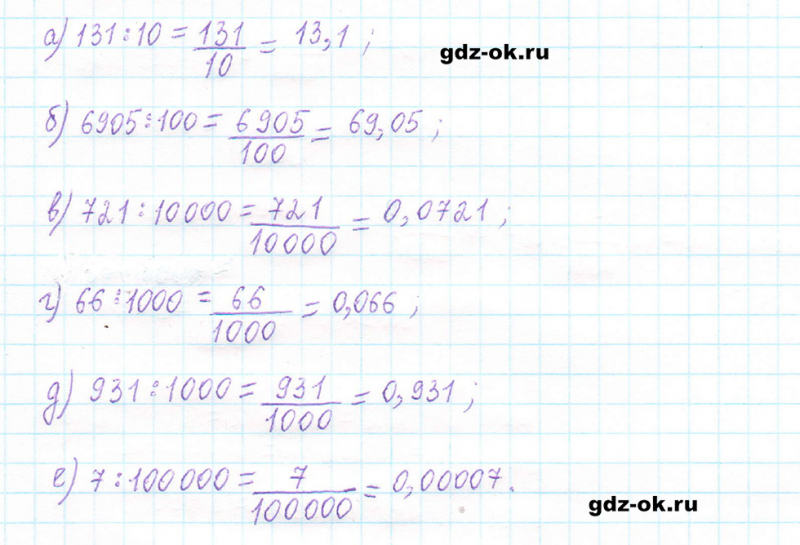 а) 131:10 = 131/10 = 13,1 ;
gdz-ok.ru
б) 6905:100 = 6905/100 = 69,05 ;
в) 721:10000 = 721/10000 = 0,0721 ;
г) 66:1000 = 66/1000 = 0,066 ;
д) 931:1000 = 931/1000 = 0,931 ;
е) 7:100000 = 7/100000 = 0,00007.
gdz-ok.ru